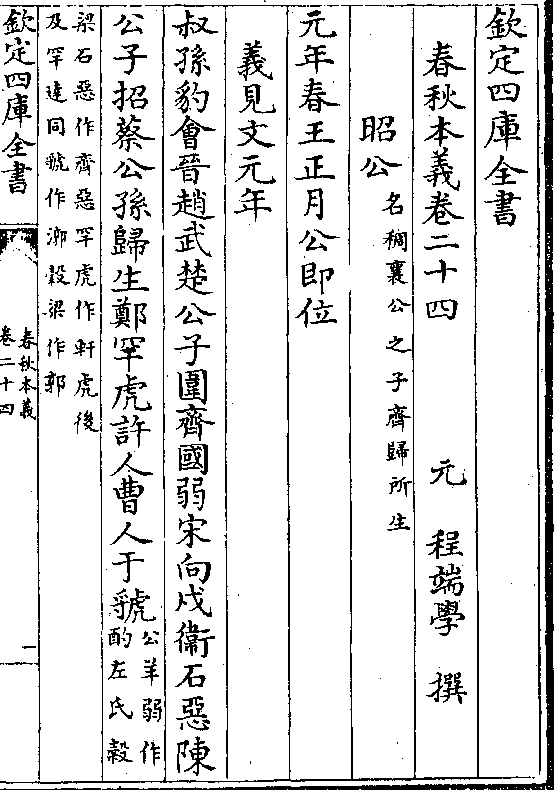 欽定四庫全書
春秋本義卷二十四 元 程端學 撰
昭公名稠襄公之子齊歸所生
元年春王正月公即位
義見文元年
叔孫豹會晉趙武楚公子圍齊國弱宋向戌衞石惡陳
公子招蔡公孫歸生鄭罕虎許人曹人于虢公羊弱作
酌左氏穀
梁石惡作齊惡罕虎作軒虎後
及罕達同虢作漷穀梁作郭
欽定四庫全書
春秋本義
卷二十四
一